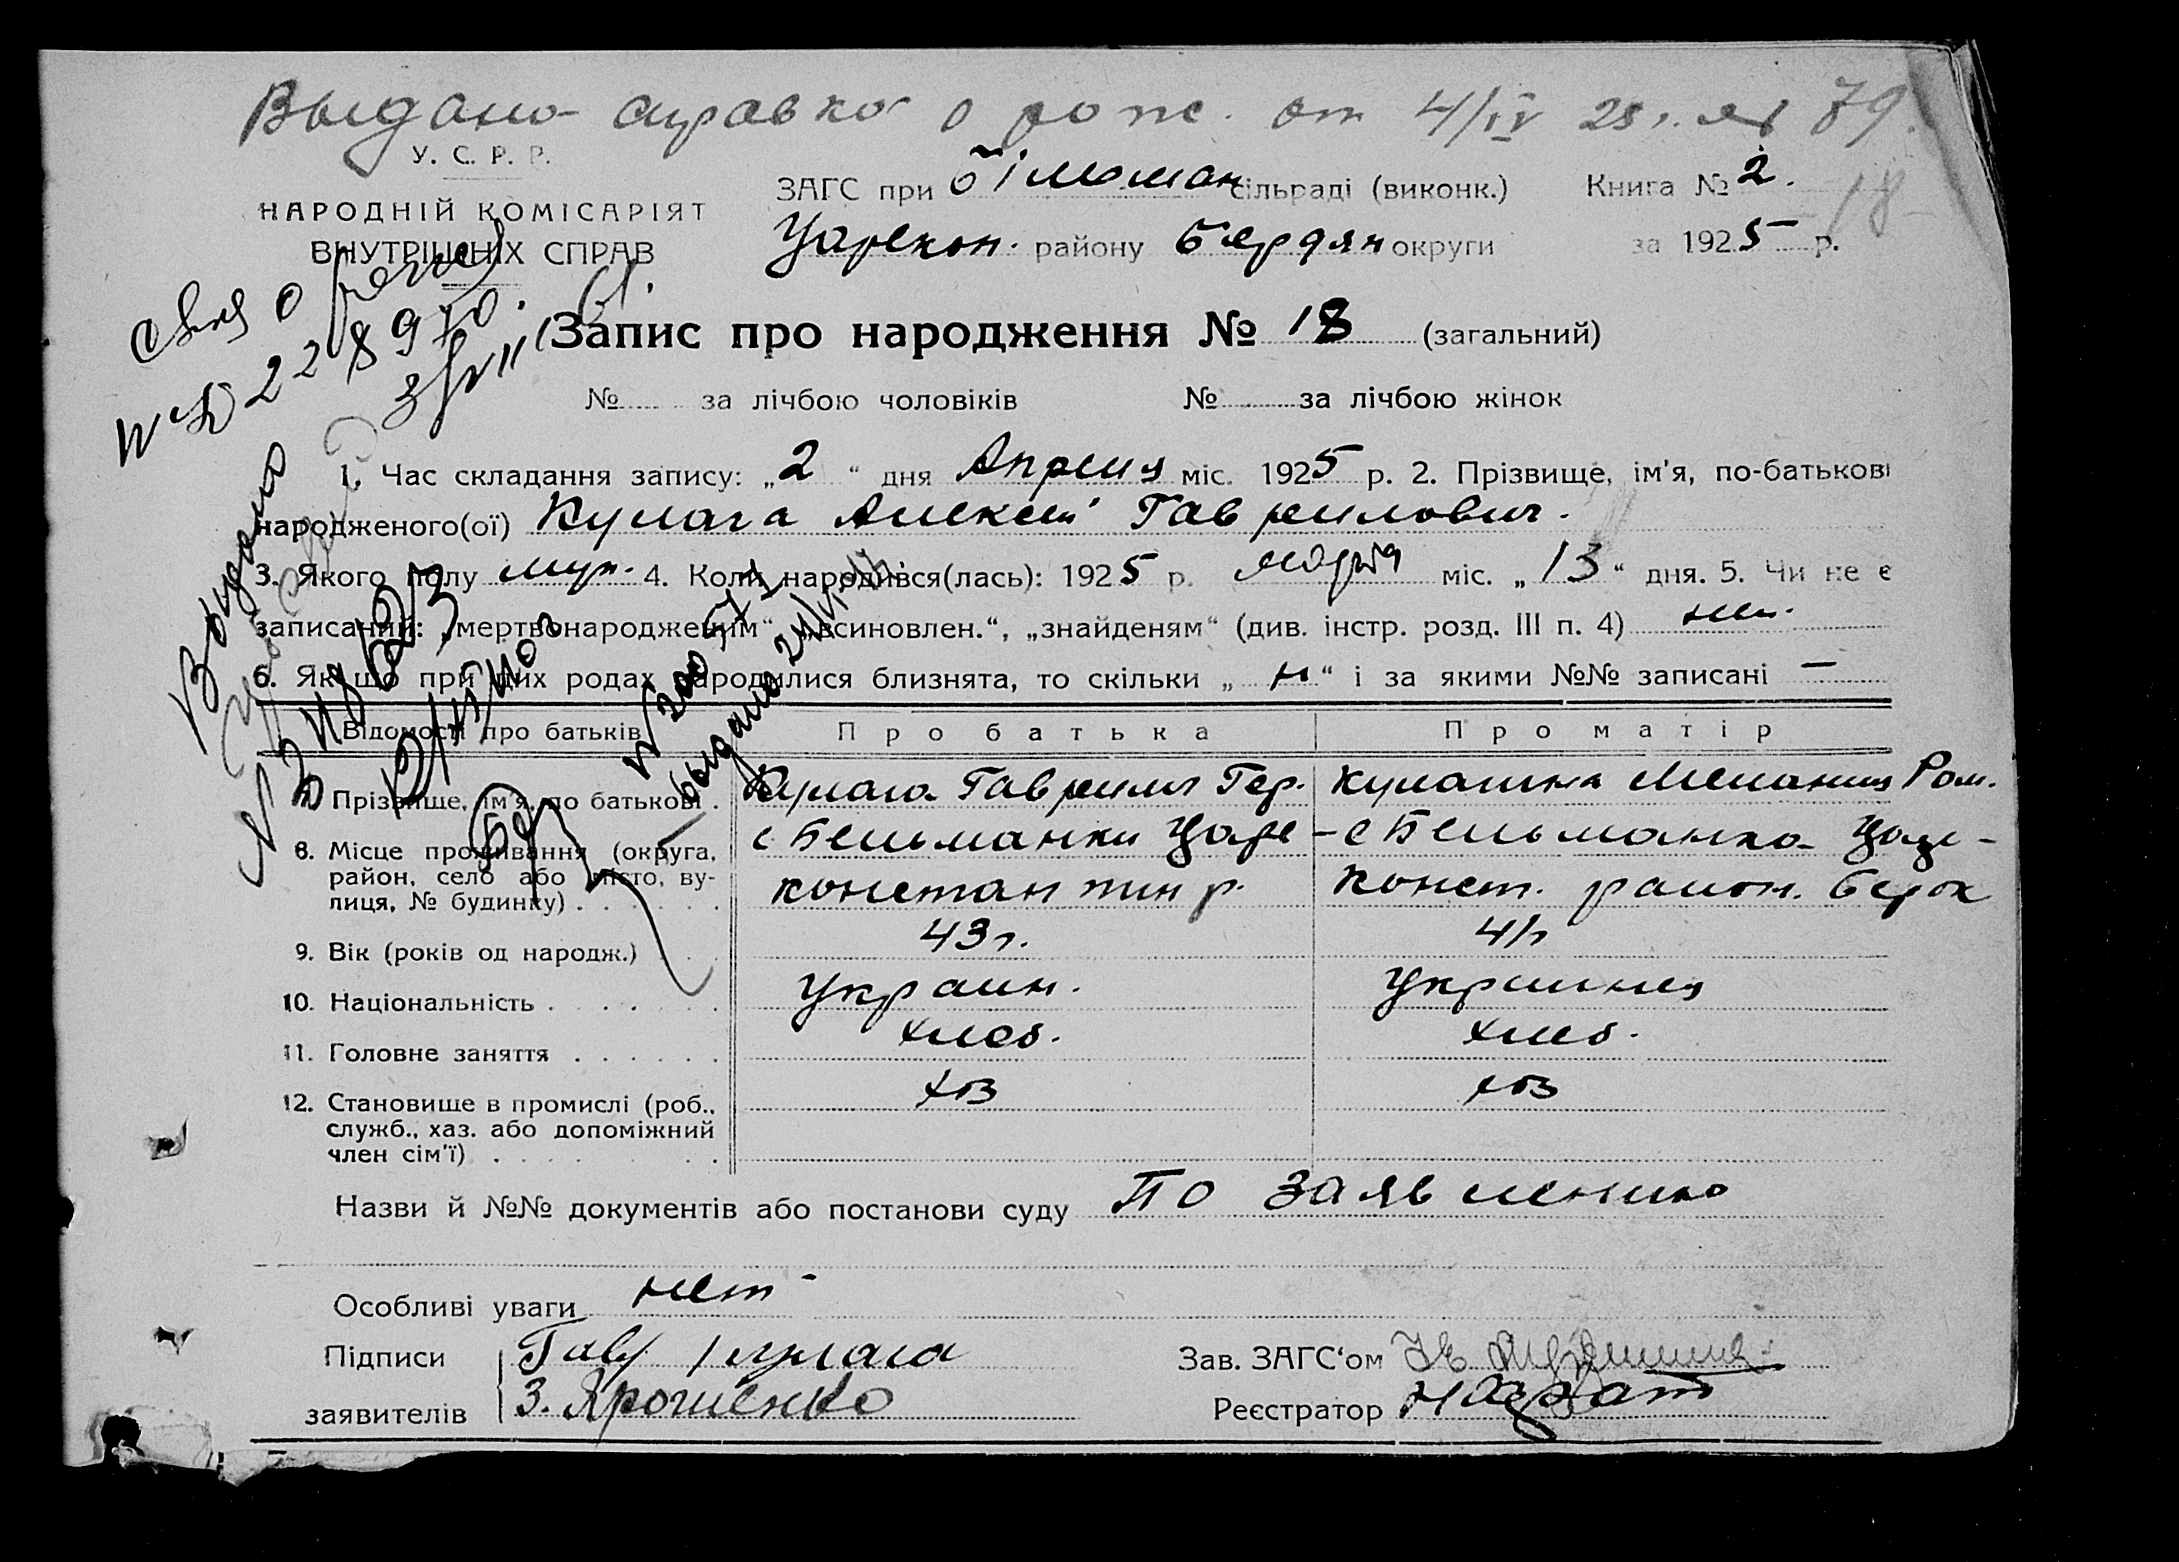 Выдано справка о рожд. от 4/IV 25 г. № 79.
У. С. Р. Р.
НАРОДНІЙ КОМІСАРІЯТ
ВНУТРІШНІХ СПРАВ
ЗАГС при Більман сільраді (виконк.) Книга № 2.
18
Царекон. району Бердян округи за 1925 р.
Запис про народження № 18 (загальний)
№ за лічбою чоловіків № за лічбою жінок
1. Час складання запису: „2“ дня Апреля міс. 1925 р. 2. Прізвище, ім'я, по-батькові
народженого(ої) Кулага Алексей Гаврилович.
3. Якого полу муж. 4. Коли народився(лась): 1925 р. марта міс. „13“ дня. 5. Чи не є
записаний: „мертвонародженим“, „всиновлен.“, „знайденям“ (див. інстр. розд. III п. 4) нет.
6. Якщо при цих родах народилися близнята, то скільки „н“ і за якими №№ записані —
Выдано
выдано
Відомості про батьків Про батька Про матір
7. Прізвище, ім'я, по батькові . Кулага Гаврилл Гер. Кулагина Мелания Ром.
8. Місце проживання (округа, район, село або місто, вулиця, № будинку) . . . . . .
с Бельманки Царе- с Бельманка Царе-
константин р. Конст. район. Бер ок
9. Вік (років од народж.) . . . 43 г. 41 г
10. Національність . . . . . . Украин. Украинка
11. Головне заняття . . . . . . хлеб. хлеб.
12. Становище в промислі (роб., служб., хаз. або допоміжний член сім'ї) . . . . . . хоз хоз
Назви й №№ документів або постанови суду По заявлению
Особливі уваги нет
Підписи Гавр Кулага Зав. ЗАГС'ом
заявителів З. Ярошенко Реєстратор